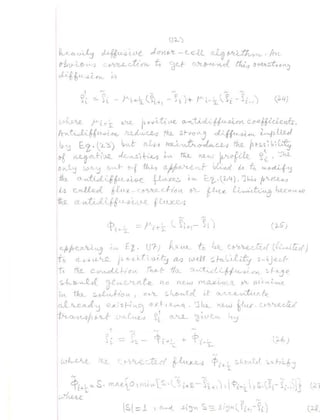 (12)
heavily diffusive donor-cell algorithm. An
obvious correction to get around this overstrong
diffusion is
ρ̂'ᵢ = ρ̃ᵢ - μᵢ₊½ (ρ̃ᵢ₊₁ - ρ̃ᵢ) + μᵢ₋½ (ρ̃ᵢ - ρ̃ᵢ₋₁) (24)
where μᵢ₊½ are positive antidiffusion coefficients.
Antidiffusion reduces the strong diffusion implied
by Eq. (23) but also reintroduces the possibility
of negative densities in the new profile. The
only way out of this apparent bind is to modify
the antidiffusive fluxes in Eq. (24). This process
is called flux-correction or flux limiting because
the antidiffusive fluxes
Φᵢ₊½ = μᵢ₊½ (ρ̃ᵢ₊₁ - ρ̃ᵢ) (25)
appearing in Eq. (17) have to be corrected (limited)
to assure positivity as well stability subject
to the condition that the antidiffusion stage
should generate no new maxima or minima
in the solution, nor should it accentuate
already existing extrema. The new flux-corrected
transport values are given by
ρ'ᵢ = ρ̃ᵢ - Φ̃ᵢ₊½ + Φ̃ᵢ₋½ (26)
where the corrected fluxes Φ̃ᵢ₊½ should satisfy
Φ̃ᵢ₊½ = S·max{0, min[S·(ρ̃ᵢ₊₂ - ρ̃ᵢ₊₁), |Φᵢ₊½|, S·(ρ̃ᵢ - ρ̃ᵢ₋₁)]} (27)
where
|S| = 1, and sign S ≡ sign (ρ̃ᵢ₊₁ - ρ̃ᵢ) (28)